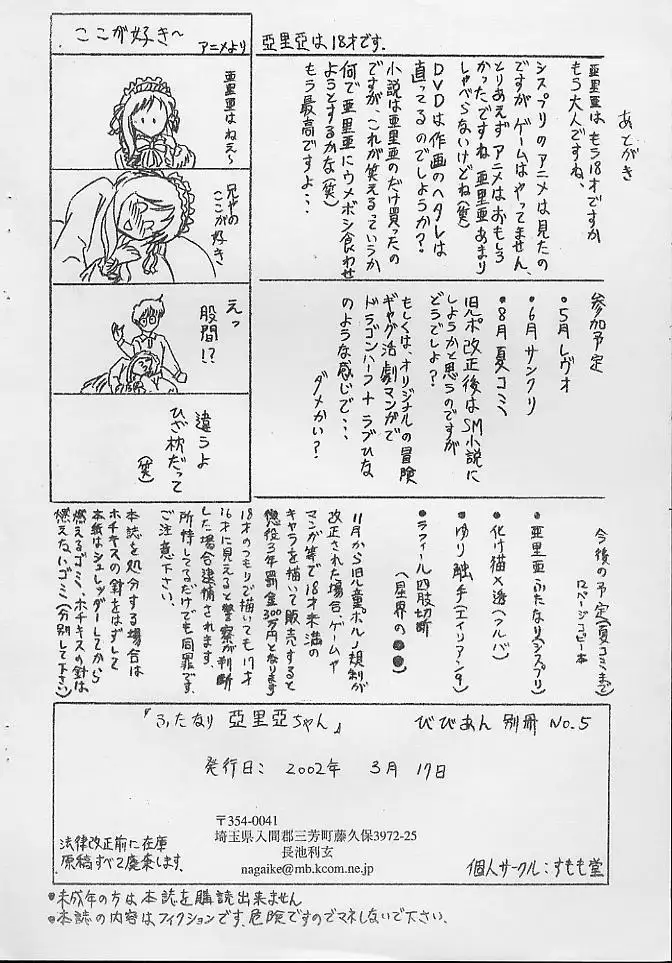 ここが好き〜
アニメより
亜里亜はねえ〜
兄やの
ここが好き
えっ
股間!?
違うよ
ひざ枕だって
(笑)
亜里亜は18才です.
あとがき
亜里亜は、もう18才ですか
もう大人ですね、
シスプリのアニメは見たの
ですが、ゲームはやってません、
とりあえずアニメはおもしろ
かったですね 亜里亜あまり
しゃべらないけどね(笑)
DVDは作画のヘタレは
直ってるのでしょうか?
小説は亜里亜のだけ買ったの
ですが、これが笑えるっていうか
何で亜里亜にウメボシ食わせ
ようとするかな(笑)
もう最高ですよ・・
参加予定
・5月レヴォ
・6月サンクリ
・8月夏コミ
児ポ改正後はSM小説に
しようかと思うのですが
どうでしょ?
もしくは、オリジナルの冒険
ギャグ活劇マンガで
ドラゴンハーフ+ラブひな
のような感じで・・・
ダメかい?
今後の予定(夏コミまで)
12ページコピー本
●亜里亜ふたなり(シスプリ)
●化け猫×透(フルバ)
●ゆり触手(エイリアン9)
●ラフィール四肢切断
(星界の●●)
11月から旧児童ポルノ規制が
改正された場合、ゲームや
マンガ等で18才未満の
キャラを描いて販売すると
懲役3年罰金300万円となります
18才のつもりで描いても17才
16才に見えると警察が判断
した場合逮捕されます.
所持してるだけでも同罪です、
ご注意下さい、
本誌を処分する場合は
ホチキスの針をはずして
本紙はシュレッダーしてから
燃えるゴミ、ホチキスの針は
燃えないゴミ(分別して下さい)
『ふたなり 亜里亜ちゃん』
びびあん 別冊 No.5
発行日: 2002年 3月 17日
〒354-0041
埼玉県入間郡三芳町藤久保3972-25
長池利玄
nagaike@mb.kcom.ne.jp
法律改正前に在庫
原稿すべて廃棄します.
個人サークル:すもも堂
●未成年の方は本誌を購読出来ません
●本誌の内容はフィクションです、危険ですのでマネしないで下さい、